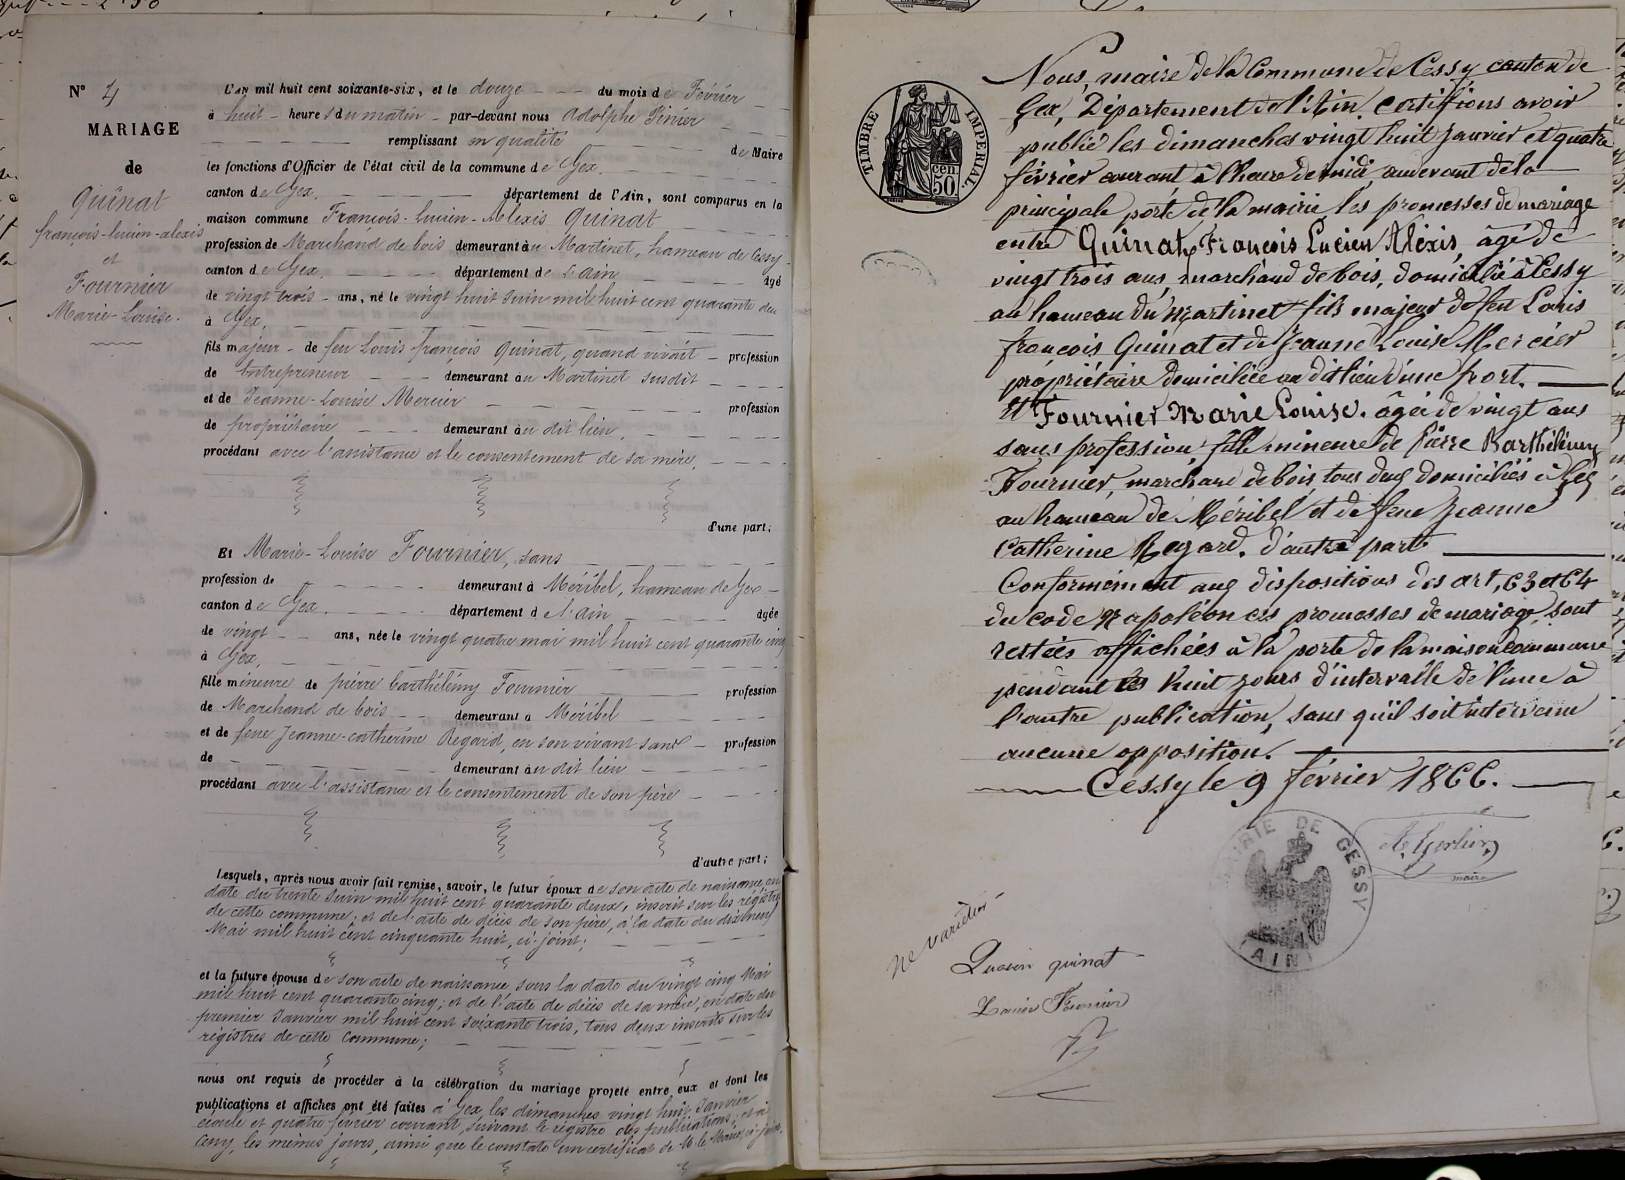 N° 4
MARIAGE
de
Quinat
françois-lucien-alexis
et
Fournier
Marie-Louise.
L'AN mil huit cent soixante-six, et le douze du mois de Février
à huit heures du matin par-devant nous Adolphe Pinier
remplissant en qualité de Maire
les fonctions d'Officier de l'état civil de la commune de Gex.
canton de Gex. département de l'Ain, sont comparus en la
maison commune François-Lucien-Alexis Quinat
profession de Marchand de bois demeurant au Martinet, hameau de Cessy
canton de Gex. département de l'ain âgé
de vingt trois ans, né le vingt huit Juin mil huit cent quarante deux
à Gex.
fils majeur de feu Louis françois Quinat, quand vivait profession
de Entrepreneur demeurant au Martinet susdit
et de Jeanne-Louise Mercier profession
de propriétaire demeurant au dit lieu.
procédant avec l'assistance et le consentement de sa mère.
d'une part;
Et Marie-Louise Fournier, sans
profession de demeurant à Méribel, hameau de Gex
canton de Gex. département de l'ain âgée
de vingt ans, née le vingt quatre mai mil huit cent quarante cinq
à Gex.
fille mineure de pierre barthélémy Fournier profession
de Marchand de bois demeurant à Méribel
et de feue Jeanne-catherine Regard, en son vivant sans profession
de demeurant au dit lieu
procédant avec l'assistance et le consentement de son père
d'autre part;
Lesquels, après nous avoir fait remise, savoir, le futur époux de son acte de naissance, en
date du trente Juin mil huit cent quarante deux, inscrit sur les régistres
de cette commune; et de l'acte de décès de son père, à la date du dix neuf
Mai mil huit cent cinquante huit, ci-joint;
et la future épouse de son acte de naissance sous la date du vingt cinq Mai
mil huit cent quarante cinq; et de l'acte de décès de sa mère, en date du
premier Janvier mil huit cent soixante trois, tous deux inscrits sur les
régistres de cette commune;
nous ont requis de procéder à la célébration du mariage projeté entre eux et dont les
publications et affiches ont été faites à Gex, les dimanches vingt huit Janvier
écoulé et quatre février courant, suivant le régistre des publications; et à
Cessy, les mêmes jours, ainsi que le constate un certificat de Mr le Maire ci-joint.
TIMBRE IMPÉRIAL.
50 cen.
Nous, maire de la Commune de Cessy canton de
Gex, Département de l'Ain, certifions avoir
publié les dimanches vingt huit janvier et quatre
février courant à l'heure de midi au devant de la
principale porte de la mairie les promesses de mariage
entre Quinat, François Lucien Alexis, âgé de
vingt trois ans, marchand de bois, domicilié à Cessy
au hameau du Martinet fils majeur de feu Louis
françois Quinat et de Jeanne Louise Mercier
propriétaire domiciliée au dit lieu d'une part.
Et Fournier Marie Louise, âgée de vingt ans
sans profession fille mineure de Pierre Barthélémy
Fournier, marchand de bois tous deux domiciliés à Gex
au hameau de Méribel et de feue Jeanne
Catherine Regard, d'autre part.
Conformément aux dispositions des art, 63 et 64
du code Napoléon ces promesses de mariage sont
restées affichées à la porte de la maison commune
pendant les huit jours d'intervalle de l'une à
l'autre publication, sans qu'il soit intervenu
aucune opposition.
Cessy le 9 février 1866.
MAIRIE DE CESSY
(AIN)
maire
ne varietur
quinat